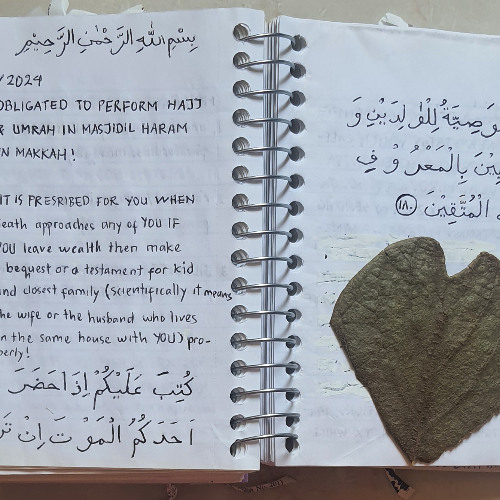 بِسْمِ اللّٰهِ الرَّحْمٰنِ الرَّحِيْمِ
/2024
OBLIGATED TO PERFORM HAJJ
& UMRAH IN MASJIDIL HARAM
IN MAKKAH!
IT IS PRESRIBED FOR YOU WHEN
death approaches any of YOU IF
YOU leave wealth then make
bequest or a testament for kid
and closest family (scientifically it means
the wife or the husband who lives
in the same house with YOU) pro-
perly!
كُتِبَ عَلَيْكُمْ اِذَا حَضَرَ
اَحَدَكُمُ الْمَوْتَ اِنْ
وَصِيَّةُ لِلْوٰلِدَيْنِ وَ
بِالْمَعْرُوْفِ
الْمُتَّقِيْنَ ١٨٠